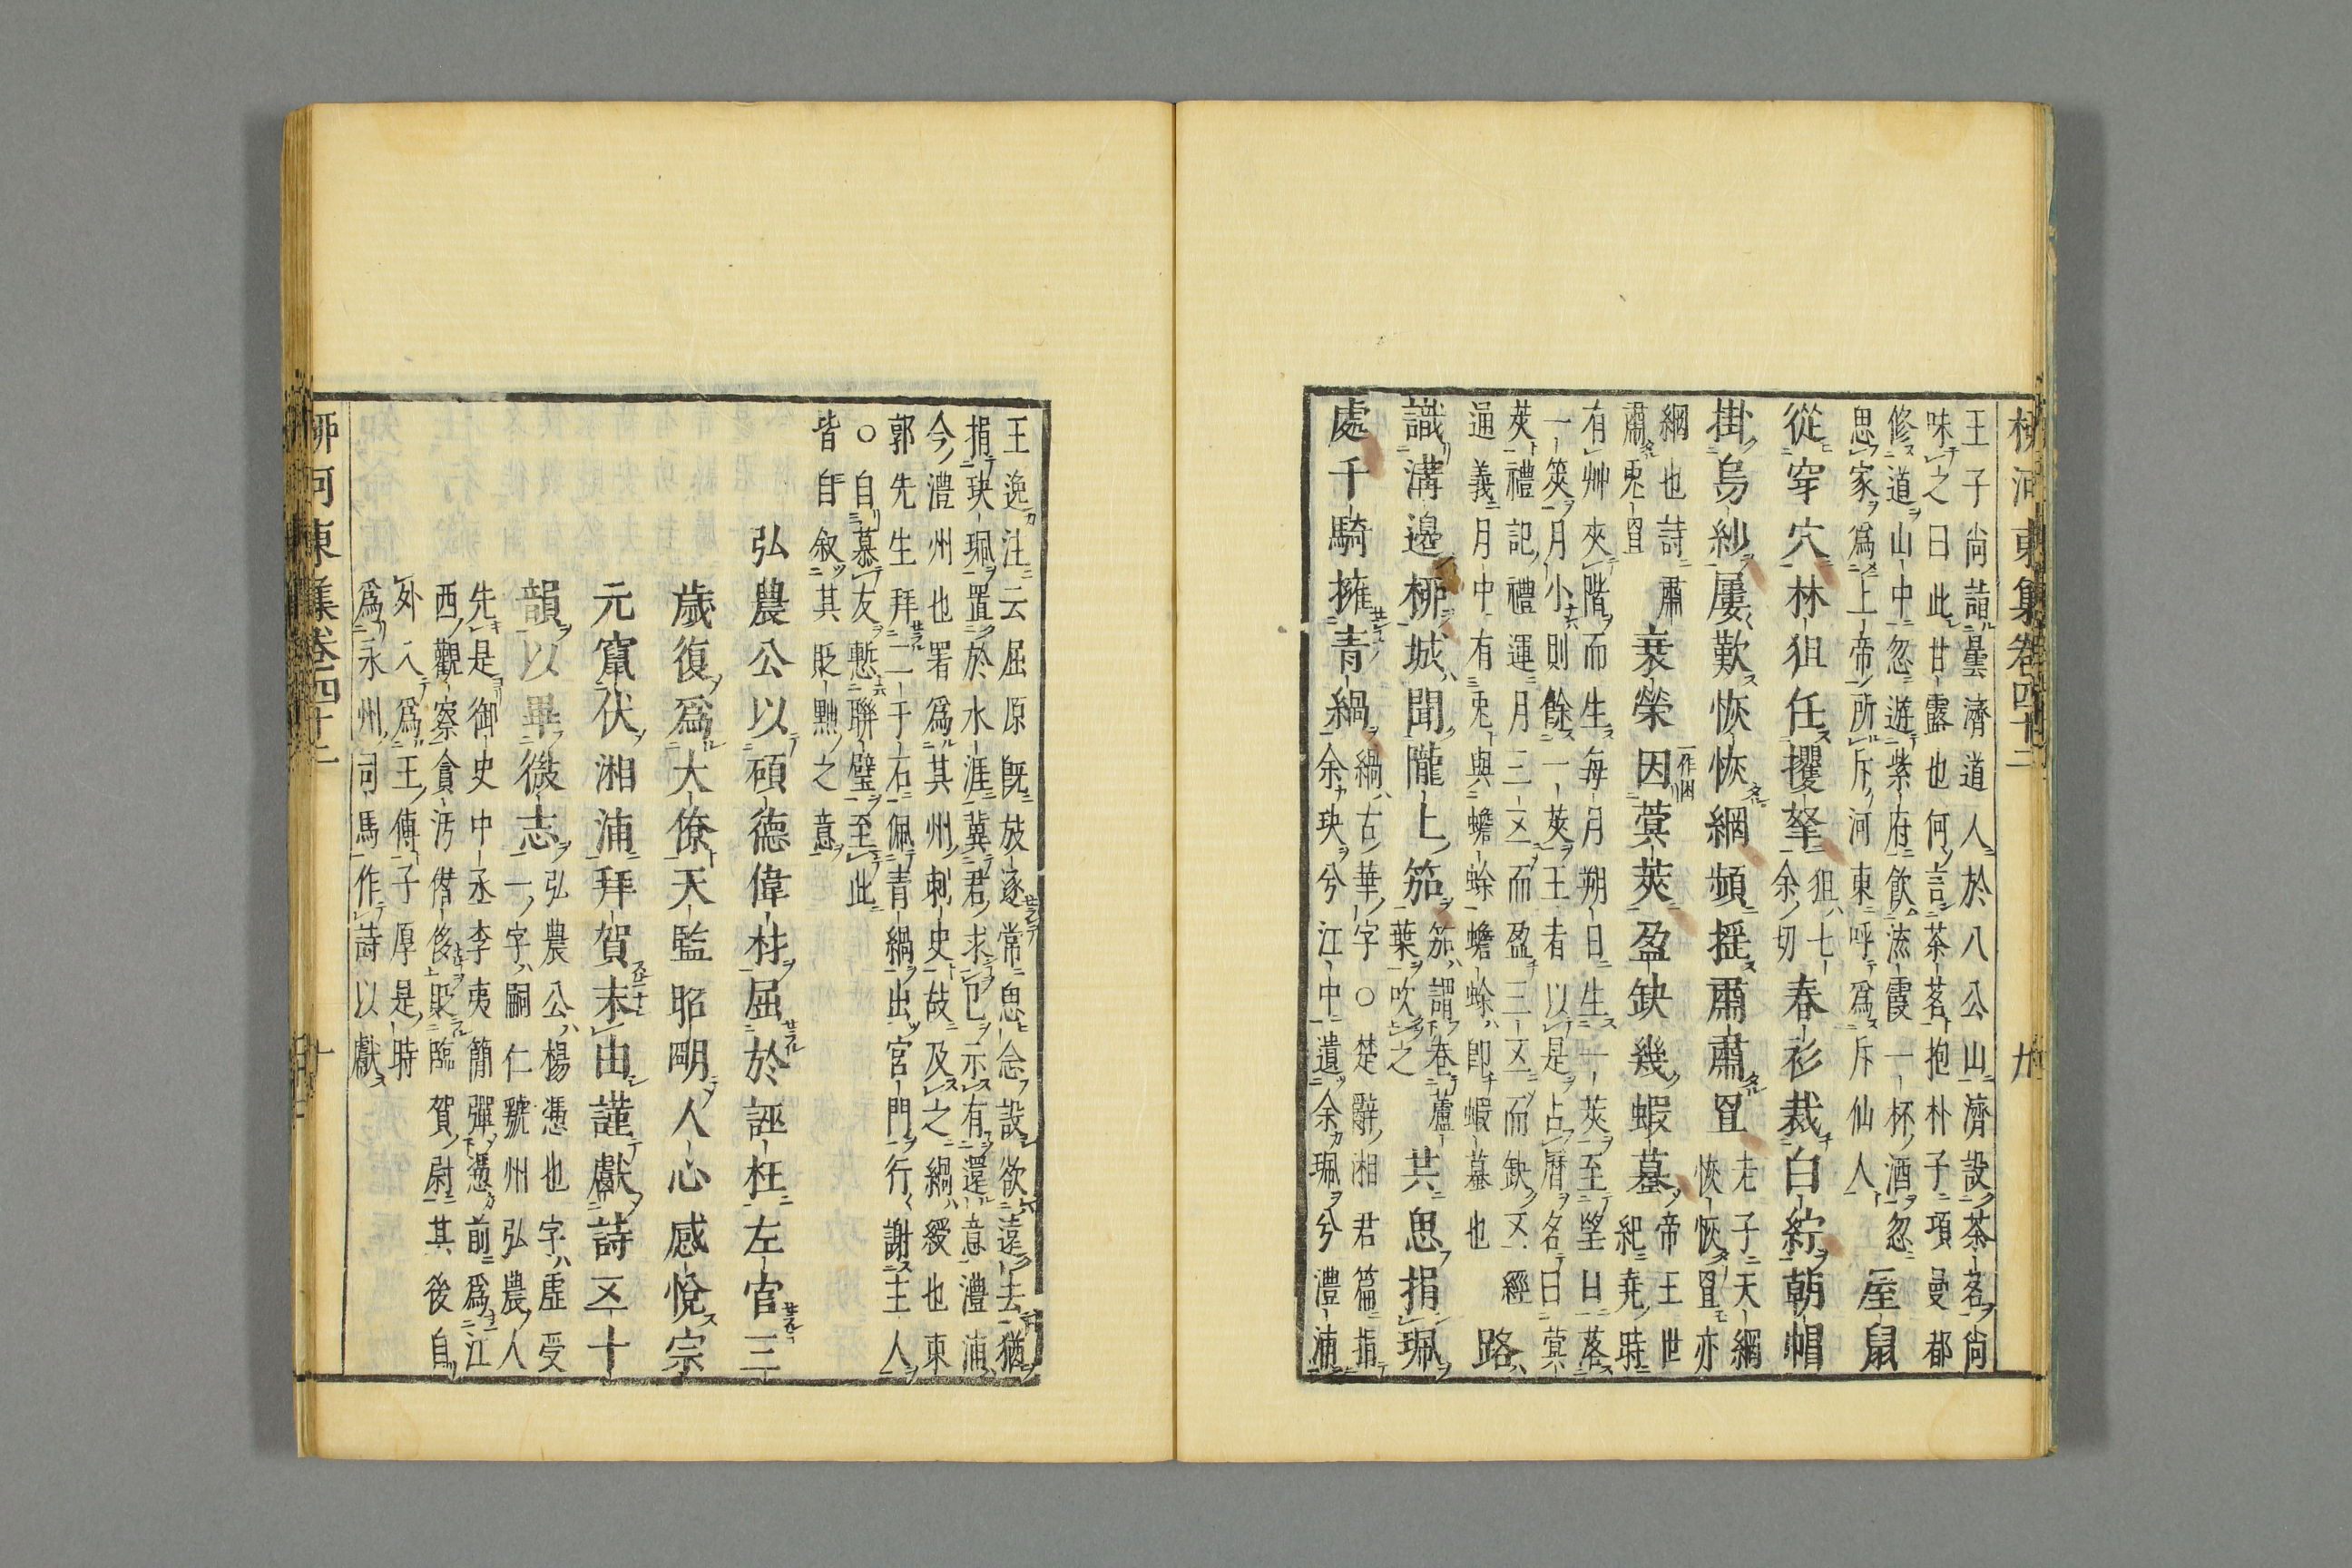 柳河東集卷四十二 九
王子尚詣曇濟道人於八公山濟設茶茗尚
味之曰此甘露也何言茶茗抱朴子項曼都
修道山中忽遊紫府飲流霞一杯酒忽
思家爲上帝所斥河東呼爲斥仙人
屋鼠
從穿穴林狙任攫拏
狙七
余切
春衫裁白紵朝帽
掛烏紗屢歎恢恢網頻揺肅肅罝
老子天網
恢恢罝亦
網也詩肅
肅兎罝
衰榮因
一作困
蓂莢盈缺幾蝦蟇
帝王世
紀堯時
有艸夾階而生每月朔日生一莢至望日落
一筴月小則餘一莢王者以是占曆名曰蓂
莢禮記禮運月三五而盈三五而缺五經
通義月中有兎與蟾蜍蟾蜍即蝦蟇也
路
識溝邊柳城聞隴上笳
笳謂卷蘆
葉吹之
共思捐珮
處千騎擁青緺
緺古華字○楚辭湘君篇捐
余玦兮江中遺余珮兮澧浦
王逸注云屈原既放逐常思念設欲遠去猶
捐玦珮置於水涯冀君求已示有還意澧浦
今澧州也署爲其州刺史故及之緺綬也東
郭先生拜二千石佩青緺出宮門行謝主人
○自慕友慙聯璧至此
皆自叙其貶黜之意
弘農公以碩德偉材屈於誣枉左官三
歳復爲大僚天監昭明人心感悅宗
元竄伏湘浦拜賀末由謹獻詩五十
韻以畢微志
弘農公楊憑也字虛受
一字嗣仁虢州弘農人
先是御史中丞李夷簡彈憑前爲江
西觀察貪汚僭侈貶臨賀尉其後自
外入爲王傅子厚是時
爲永州司馬作詩以獻
柳河東集卷四十二